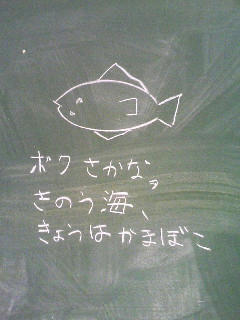 ボク さかな。
きのう海、
きょうはかまぼこ